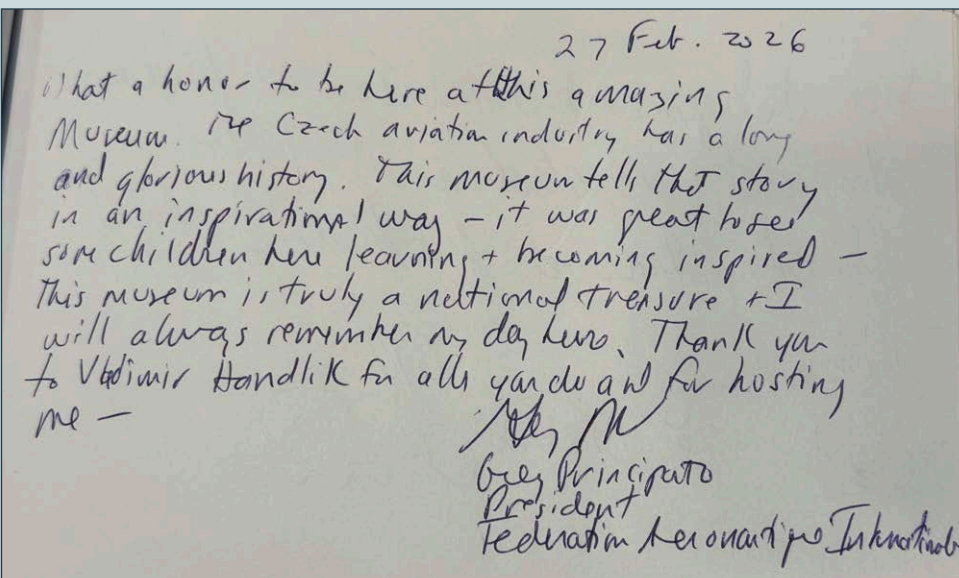 27 Feb. 2026
What a honor to be here at this amazing
Museum. The Czech aviation industry has a long
and glorious history. This museum tells that story
in an inspirational way – it was great to see
some children here learning + becoming inspired –
This museum is truly a national treasure + I
will always remember my day here. Thank you
to Vladimir Handlik for all you do and for hosting
me –
Greg Principato
President
Federation Aeronautique Internationale